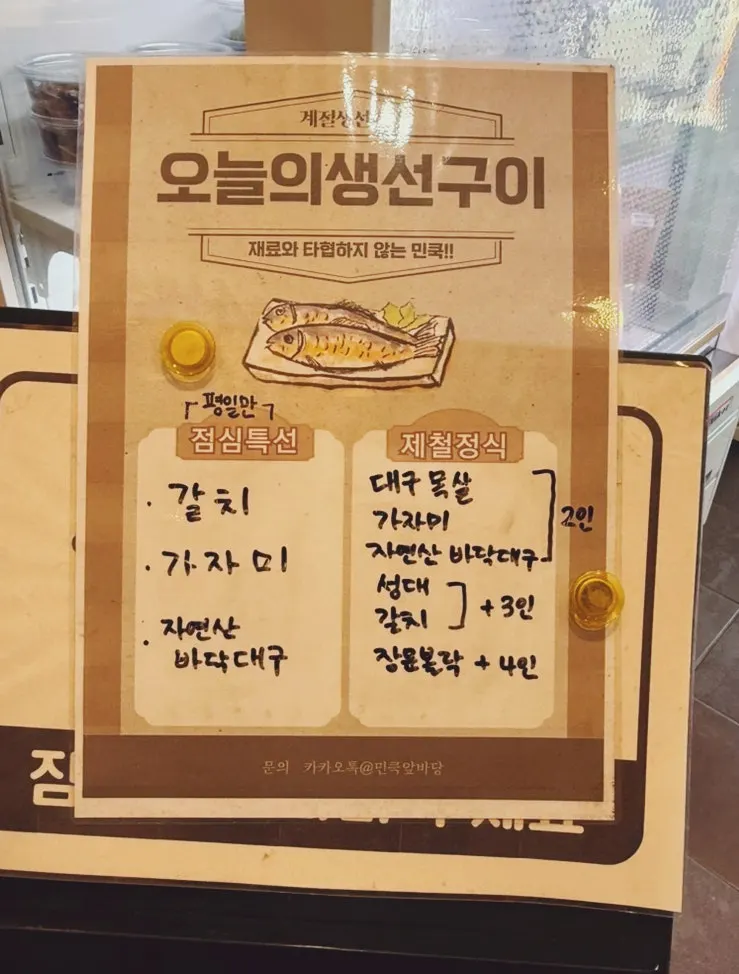 계절생선
오늘의생선구이
재료와 타협하지 않는 민쿡!!
「평일만」
점심특선
· 갈치
· 가자미
· 자연산
바닥대구
제철정식
대구 목살
가자미
자연산 바닥대구
2인
성대
갈치
+3인
장문볼락 +4인
문의 카카오톡@민쿡앞바당